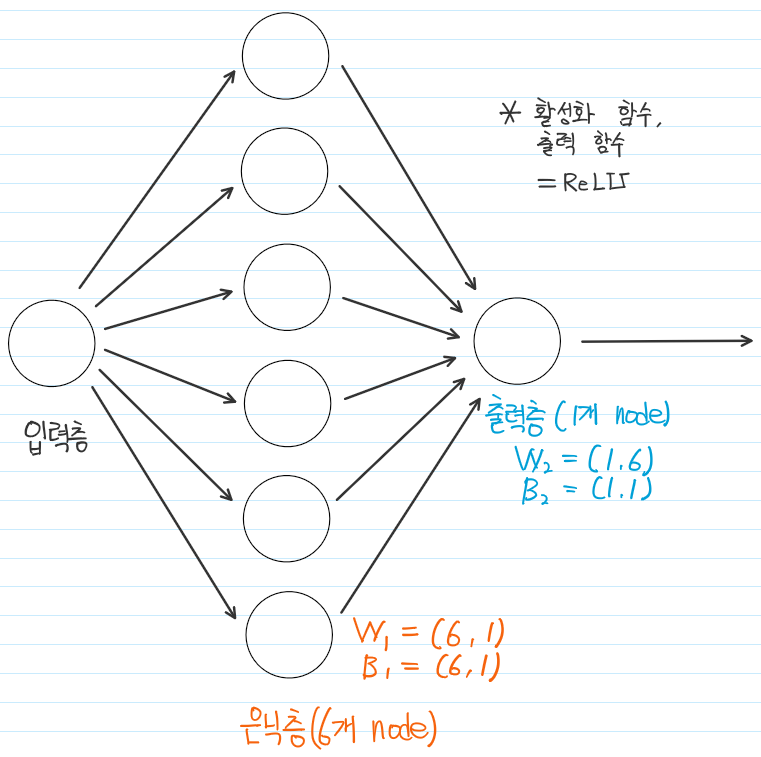 * 활성화 함수,
출력 함수
= ReLU
입력층
출력층 (1개 node)
W₂ = (1.6)
B₂ = (1.1)
W₁ = (6,1)
B₁ = (6,1)
은닉층(6개 node)